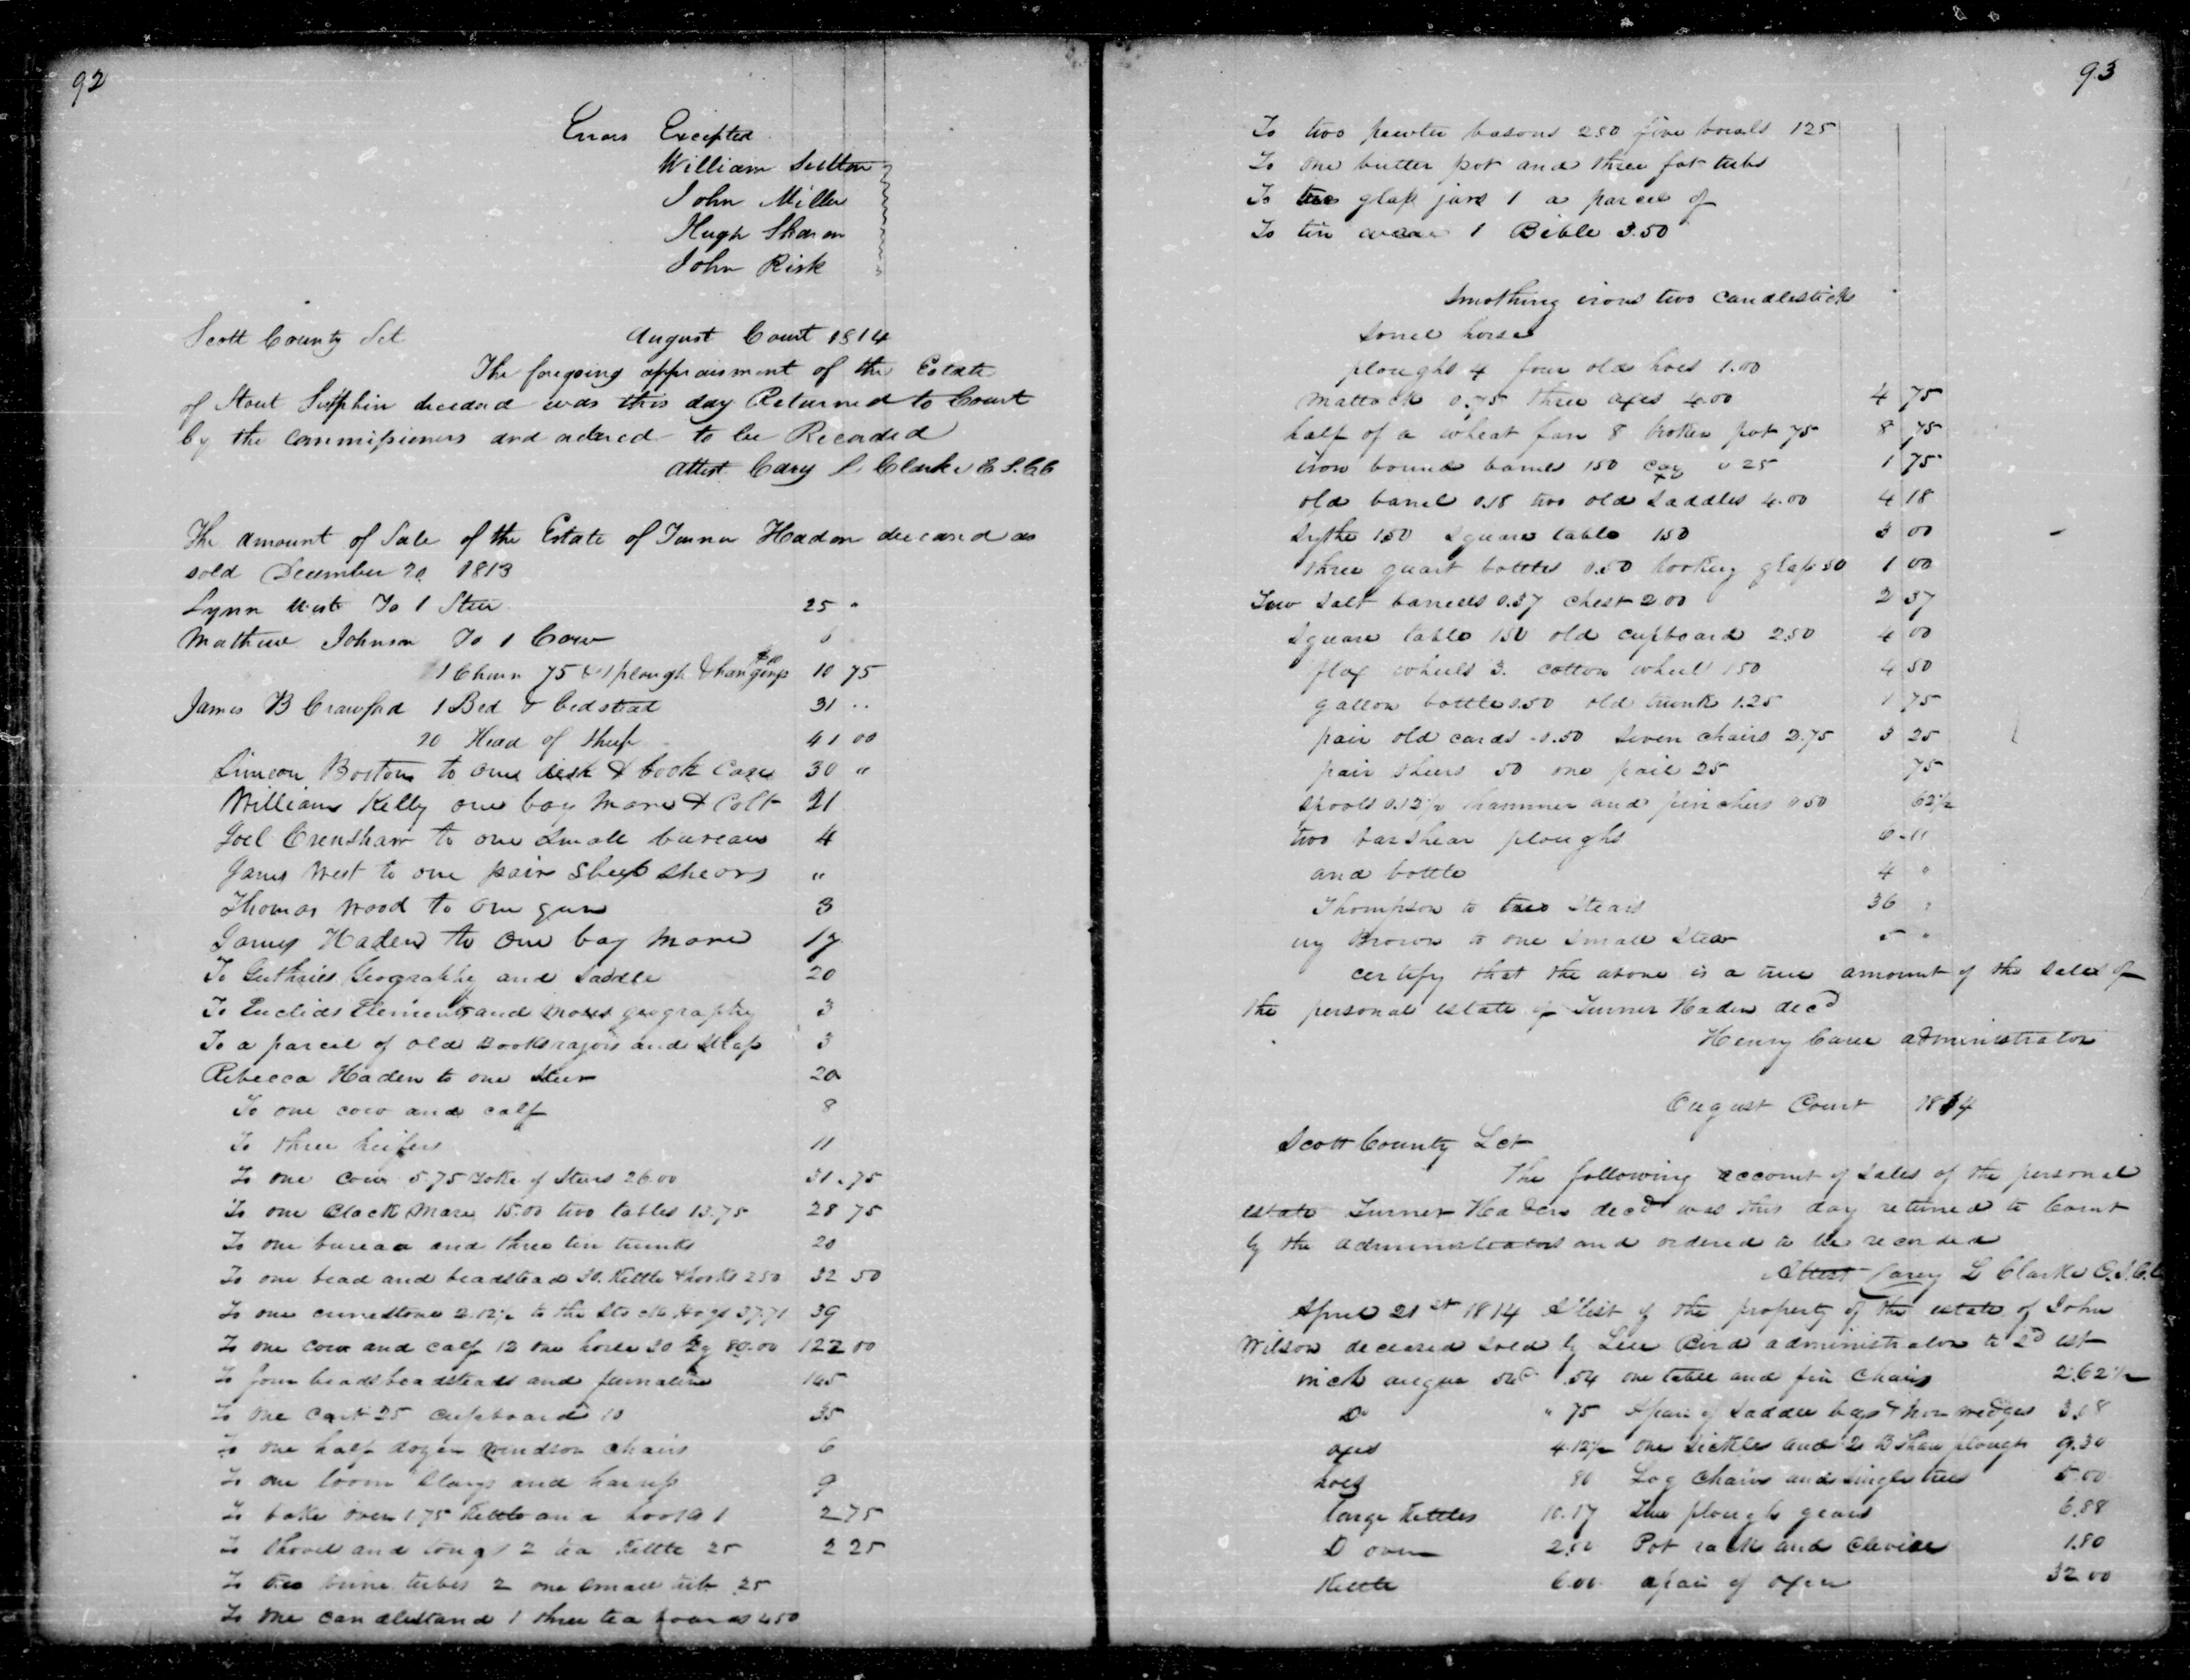 92
Errors Excepted
William Sutton
John Miller
Hugh Sharon
John Risk
Scott County Sct August Court 1814
The foregoing appraisment of the Estate
of Stout Sutphin deceased was this day Returned to Court
by the Commissioners and ordered to be Recorded
Attest Cary L Clarke C S.C.C
The amount of Sale of the Estate of Turner Haden deceased as
sold December 20 1813
Lynn West To 1 Steer 25 "
Mathew Johnson To 1 Cow 6
1 Churn 75 & 1 plough & hangings 10 75
James B Crawford 1 Bed & bedstead 31 ..
20 Head of Sheep 41 00
Simeon Boston to one desk & book case 30 "
William Kelly one bay mare & Colt 21
Joel Crenshaw to one Small bureau 4
James West to one pair Sheep shears "
Thomas Wood to one gun 3
James Haden to one bay mare 17
To Guthries Geography and Saddle 20
To Euclids Elements and Moses geography 3
To a parcel of old Books razors and strap 3
Rebecca Haden to one Steer 20
To one cow and calf 8
To three heifers 11
To one cow 5.75 yoke of Steers 26.00 31.75
To one Black Mare 15.00 two tables 13.75 28 75
To one bureau and three tin trunks 20
To one bead and beadstead 30. Kettle & hooks 250 32 50
To one 2.12½ to the Stock Hogs 37.71 39
To one cow and calf 12 one horse 30 80.00 122 00
To four beads beadsteads and furnature 145
To one cart 25 cupboard 10 35
To one half dozen windson chairs 6
To one loom Slays and 9
To bake oven 1.75 Kettle and hooks 1 2 75
To Shovel and tongs 2 tea Kettle 25 2 25
To two brine tubes 2 one small tub 25
To one candlestand 1 three tea boards 450
93
To two pewter basons 250 five bowls 125
To one butter pot and three fat tubs
To two glass jars 1 a parcel of
To tin ware 1 Bible 3.50
Smothing irons two candlesticks
Sorrel horse
ploughs 4 four old hoes 1.00
Mattock 0.75 three axes 4.00 4 75
half of a wheat fan 8 broken pot 75 8 75
iron bound barrel 150 0 25 1 75
old barrel 0.18 two old Saddles 4.00 4 18
Sythe 1.50 Square table 150 3 00
three quart bottles 0.50 looking glass 50 1 00
Two Salt barrells 0.37 chest 2 00 2 37
Square table 150 old cupboard 2.50 4 00
flax wheels 3. cotton wheel 150 4 50
gallon bottle 0.50 old trunk 1.25 1 75
pair old cards .0.50 Seven chairs 2.75 3 25
pair sheers 50 one pail 25 75
Spools 0.12½ hammer and pinchers 0 50 62½
two barshear ploughs 6 "
and bottle 4 "
Thompson to two Stears 36 "
ry Brown to one small Stear 5 "
certify that the above is a true amount of the sales of
the personal estate of Turner Haden decd
Henry administrator
August Court 1814
Scott County Sct
The following account of Sales of the personal
estate Turner Haden decd was this day returned to Court
by the administrators and ordered to be recorded
Attest Carey L Clarke C.S.C.C
April 21st 1814 A list of the property of the estate of John
Wilson deceased sold by Bird administrator to sd est
inch augur .54 one table and five Chairs 2.62½
Do " 75 A pair of Saddle bags & Iron wedges 3.18
axes 4.12½ one Sickles and 2 B Shear plough 9.30
hoes 80 Log Chain and Single trees 5.00
large Kettles 10.17 Two plough gears 6.88
D oven 2.00 Pot rack and Clevise 1.80
Kettle 6.00 a pair of oxen 32 00